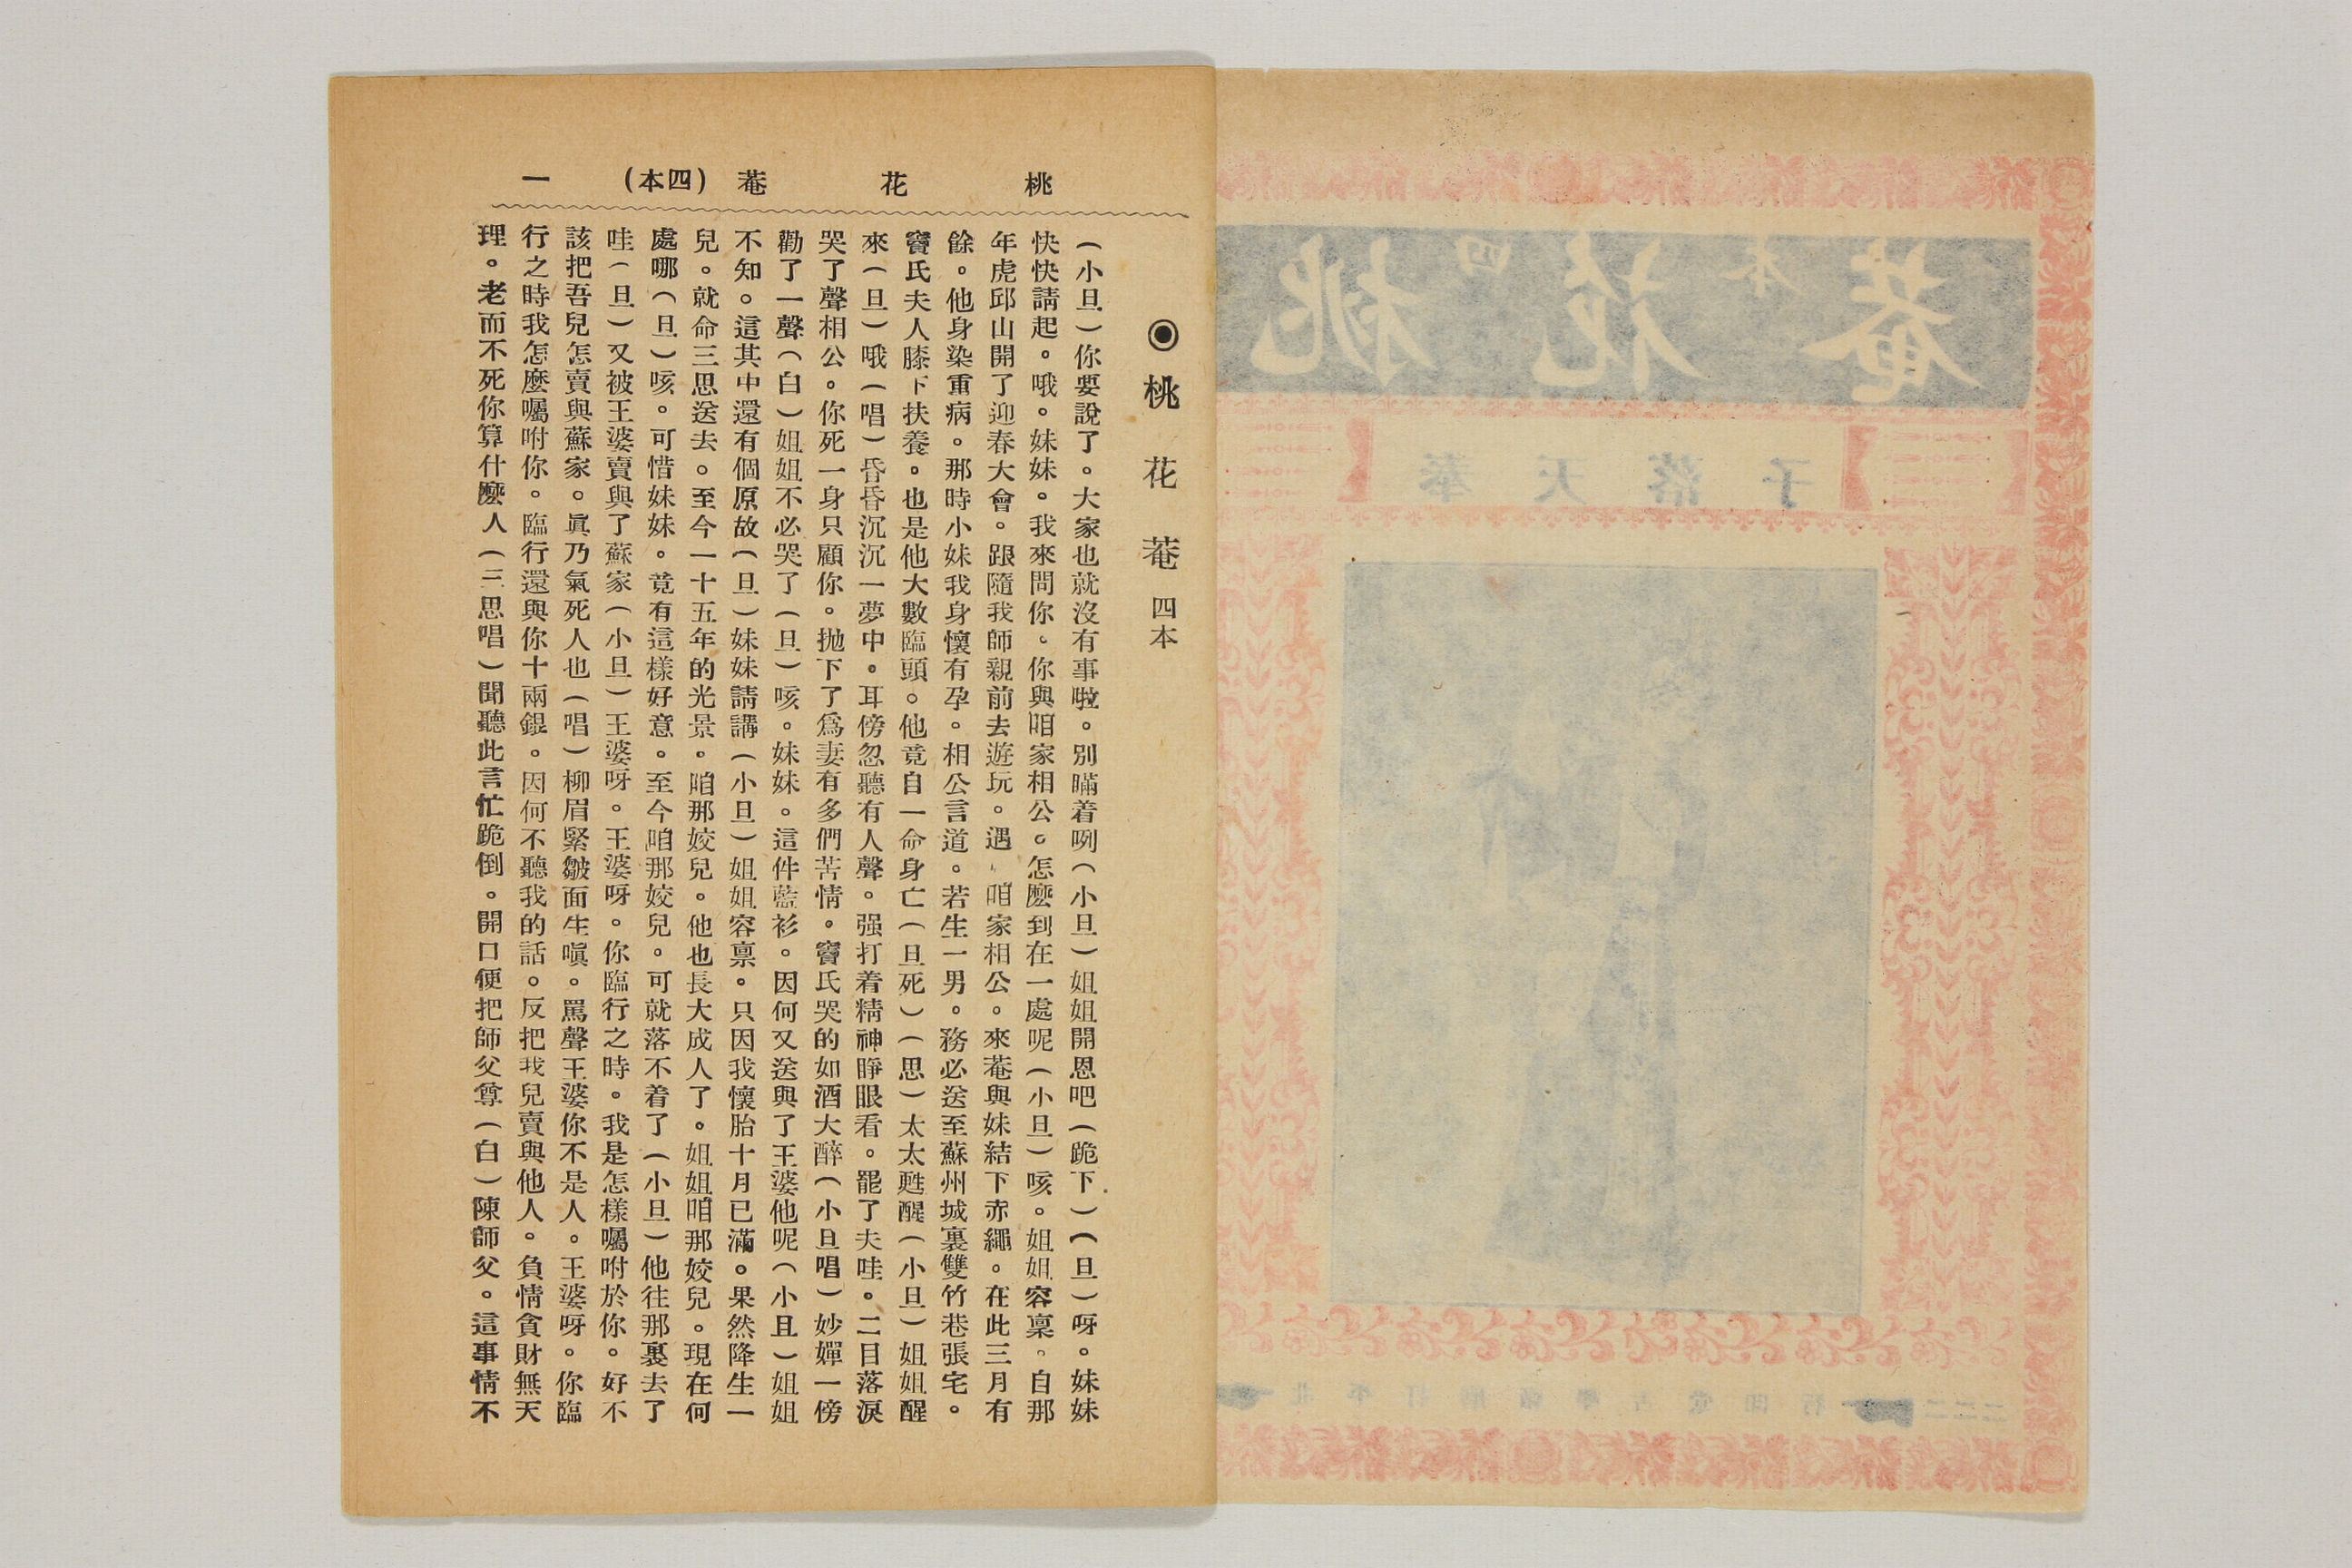 桃花菴(四本) 一
◉桃花菴 四本
(小旦)你要說了。大家也就沒有事啦。別瞞着咧(小旦)姐姐開恩吧(跪下)(旦)呀。妹妹
快快請起。哦。妹妹。我來問你。你與咱家相公。怎麼到在一處呢(小旦)咳。姐姐容稟。自那
年虎邱山開了迎春大會。跟隨我師親前去遊玩。遇 咱家相公。來菴與妹結下赤繩。在此三月有
餘。他身染重病。那時小妹我身懷有孕。相公言道。若生一男。務必送至蘇州城裏雙竹巷張宅。
竇氏夫人膝下扶養。也是他大數臨頭。他竟自一命身亡(旦死)(思)太太甦醒(小旦)姐姐醒
來(旦)哦(唱)昏昏沉沉一夢中。耳傍忽聽有人聲。强打着精神睜眼看。罷了夫哇。二目落淚
哭了聲相公。你死一身只顧你。抛下了爲妻有多們苦情。竇氏哭的如酒大醉(小旦唱)妙嬋一傍
勸了一聲(白)姐姐不必哭了(旦)咳。妹妹。這件藍衫。因何又送與了王婆他呢(小且)姐姐
不知。這其中還有個原故(旦)妹妹請講(小旦)姐姐容禀。只因我懷胎十月已滿。果然降生一
兒。就命三思送去。至今一十五年的光景。咱那姣兒。他也長大成人了。姐姐咱那姣兒。現在何
處哪(旦)咳。可惜妹妹。竟有這樣好意。至今咱那姣兒。可就落不着了(小旦)他往那裏去了
哇(旦)又被王婆賣與了蘇家(小旦)王婆呀。王婆呀。你臨行之時。我是怎樣囑咐於你。好不
該把吾兒怎賣與蘇家。眞乃氣死人也(唱)柳眉緊皺面生嗔。罵聲王婆你不是人。王婆呀。你臨
行之時我怎麼囑咐你。臨行還與你十兩銀。因何不聽我的話。反把我兒賣與他人。負情貪財無天
理。老而不死你算什麼人(三思唱)聞聽此言忙跪倒。開口便把師父尊(白)陳師父。這事情不
桃花菴
四本
奉天落子